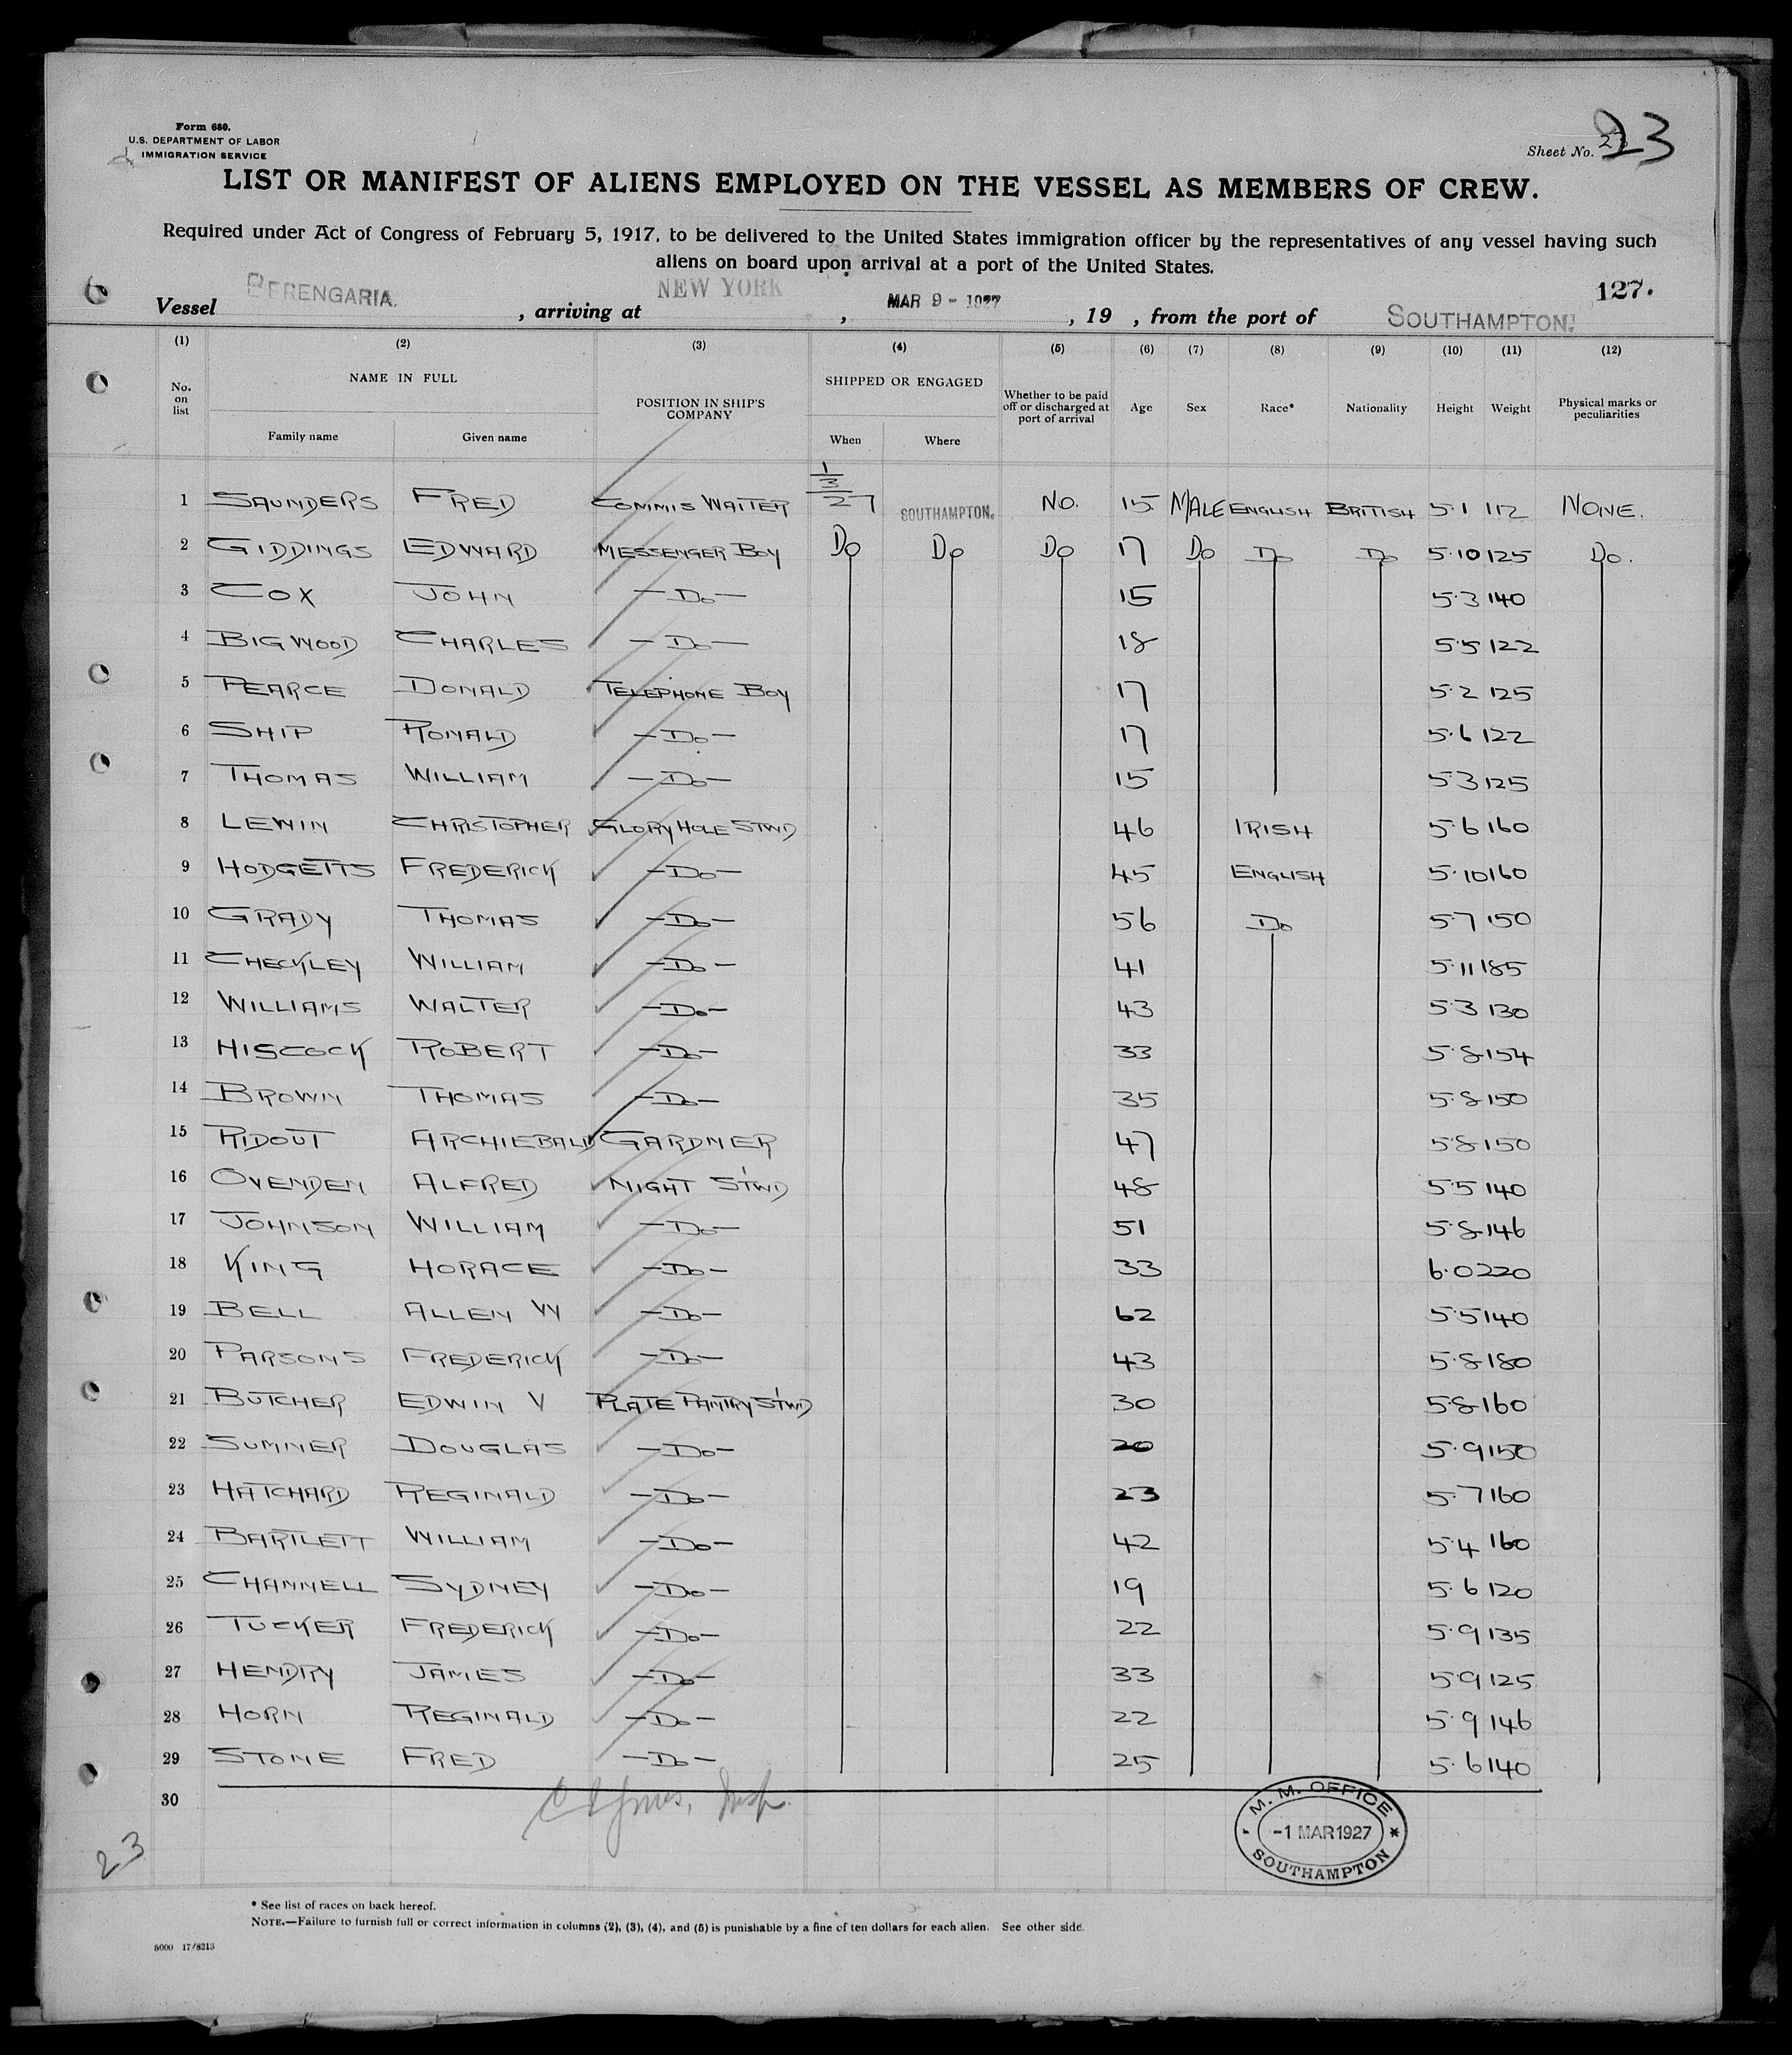 Form 680.
U.S. DEPARTMENT OF LABOR
IMMIGRATION SERVICE
Sheet No. 23
LIST OR MANIFEST OF ALIENS EMPLOYED ON THE VESSEL AS MEMBERS OF CREW.
Required under Act of Congress of February 5, 1917, to be delivered to the United States immigration officer by the representatives of any vessel having such
aliens on board upon arrival at a port of the United States.
127.
Vessel BERENGARIA. , arriving at NEW YORK , MAR 9 - 1927 , 19 , from the port of SOUTHAMPTON.
(1) (2) (3) (4) (5) (6) (7) (8) (9) (10) (11) (12)
No. on list NAME IN FULL Family name Given name POSITION IN SHIP'S COMPANY SHIPPED OR ENGAGED When Where Whether to be paid off or discharged at port of arrival Age Sex Race* Nationality Height Weight Physical marks or peculiarities
1 SAUNDERS FRED COMMIS WAITER 1/3/27 SOUTHAMPTON. NO. 15 MALE ENGLISH BRITISH 5.1 112 NONE.
2 GIDDINGS EDWARD MESSENGER BOY DO DO DO 17 DO DO DO 5.10 125 DO.
3 COX JOHN — DO — 15 5.3 140
4 BIGWOOD CHARLES — DO — 18 5.5 122
5 PEARCE DONALD TELEPHONE BOY 17 5.2 125
6 SHIP RONALD — DO — 17 5.6 122
7 THOMAS WILLIAM — DO — 15 5.3 125
8 LEWIN CHRISTOPHER GLORY HOLE STWD 46 IRISH 5.6 160
9 HODGETTS FREDERICK — DO — 45 ENGLISH 5.10 160
10 GRADY THOMAS — DO — 56 DO 5.7 150
11 CHECKLEY WILLIAM — DO — 41 5.11 185
12 WILLIAMS WALTER — DO — 43 5.3 130
13 HISCOCK ROBERT — DO — 33 5.8 154
14 BROWN THOMAS — DO — 35 5.8 150
15 RIDOUT ARCHIEBALD GARDNER 47 5.8 150
16 OVENDEN ALFRED NIGHT ST'WD 48 5.5 140
17 JOHNSON WILLIAM — DO — 51 5.8 146
18 KING HORACE — DO — 33 6.0 220
19 BELL ALLEN W — DO — 62 5.5 140
20 PARSONS FREDERICK — DO — 43 5.8 180
21 BUTCHER EDWIN V PLATE PANTRY ST'WD 30 5.8 160
22 SUMNER DOUGLAS — DO — 20 5.9 150
23 HATCHARD REGINALD — DO — 23 5.7 160
24 BARTLETT WILLIAM — DO — 42 5.4 160
25 CHANNELL SYDNEY — DO — 19 5.6 120
26 TUCKER FREDERICK — DO — 22 5.9 135
27 HENDRY JAMES — DO — 33 5.9 125
28 HORN REGINALD — DO — 22 5.9 146
29 STONE FRED — DO — 25 5.6 140
30
M. M. OFFICE
-1 MAR 1927 *
SOUTHAMPTON
23
* See list of races on back hereof.
NOTE.—Failure to furnish full or correct information in columns (2), (3), (4), and (5) is punishable by a fine of ten dollars for each alien. See other side.
5000 17/8213